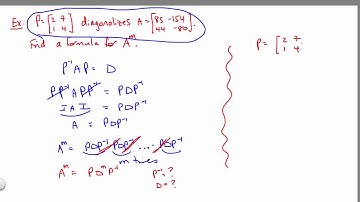 Ex: P = [2 7 1 4] diagonalizes A = [85 -154 44 -80].
Find a formula for A^m.
P⁻¹AP = D
PP⁻¹APP⁻¹ = PDP⁻¹
IAI = PDP⁻¹
A = PDP⁻¹
A^m = PDP⁻¹ PDP⁻¹ ... PDP⁻¹
m times
A^m = PD^mP⁻¹
P⁻¹ = ?
D = ?
P = [2 7 1 4